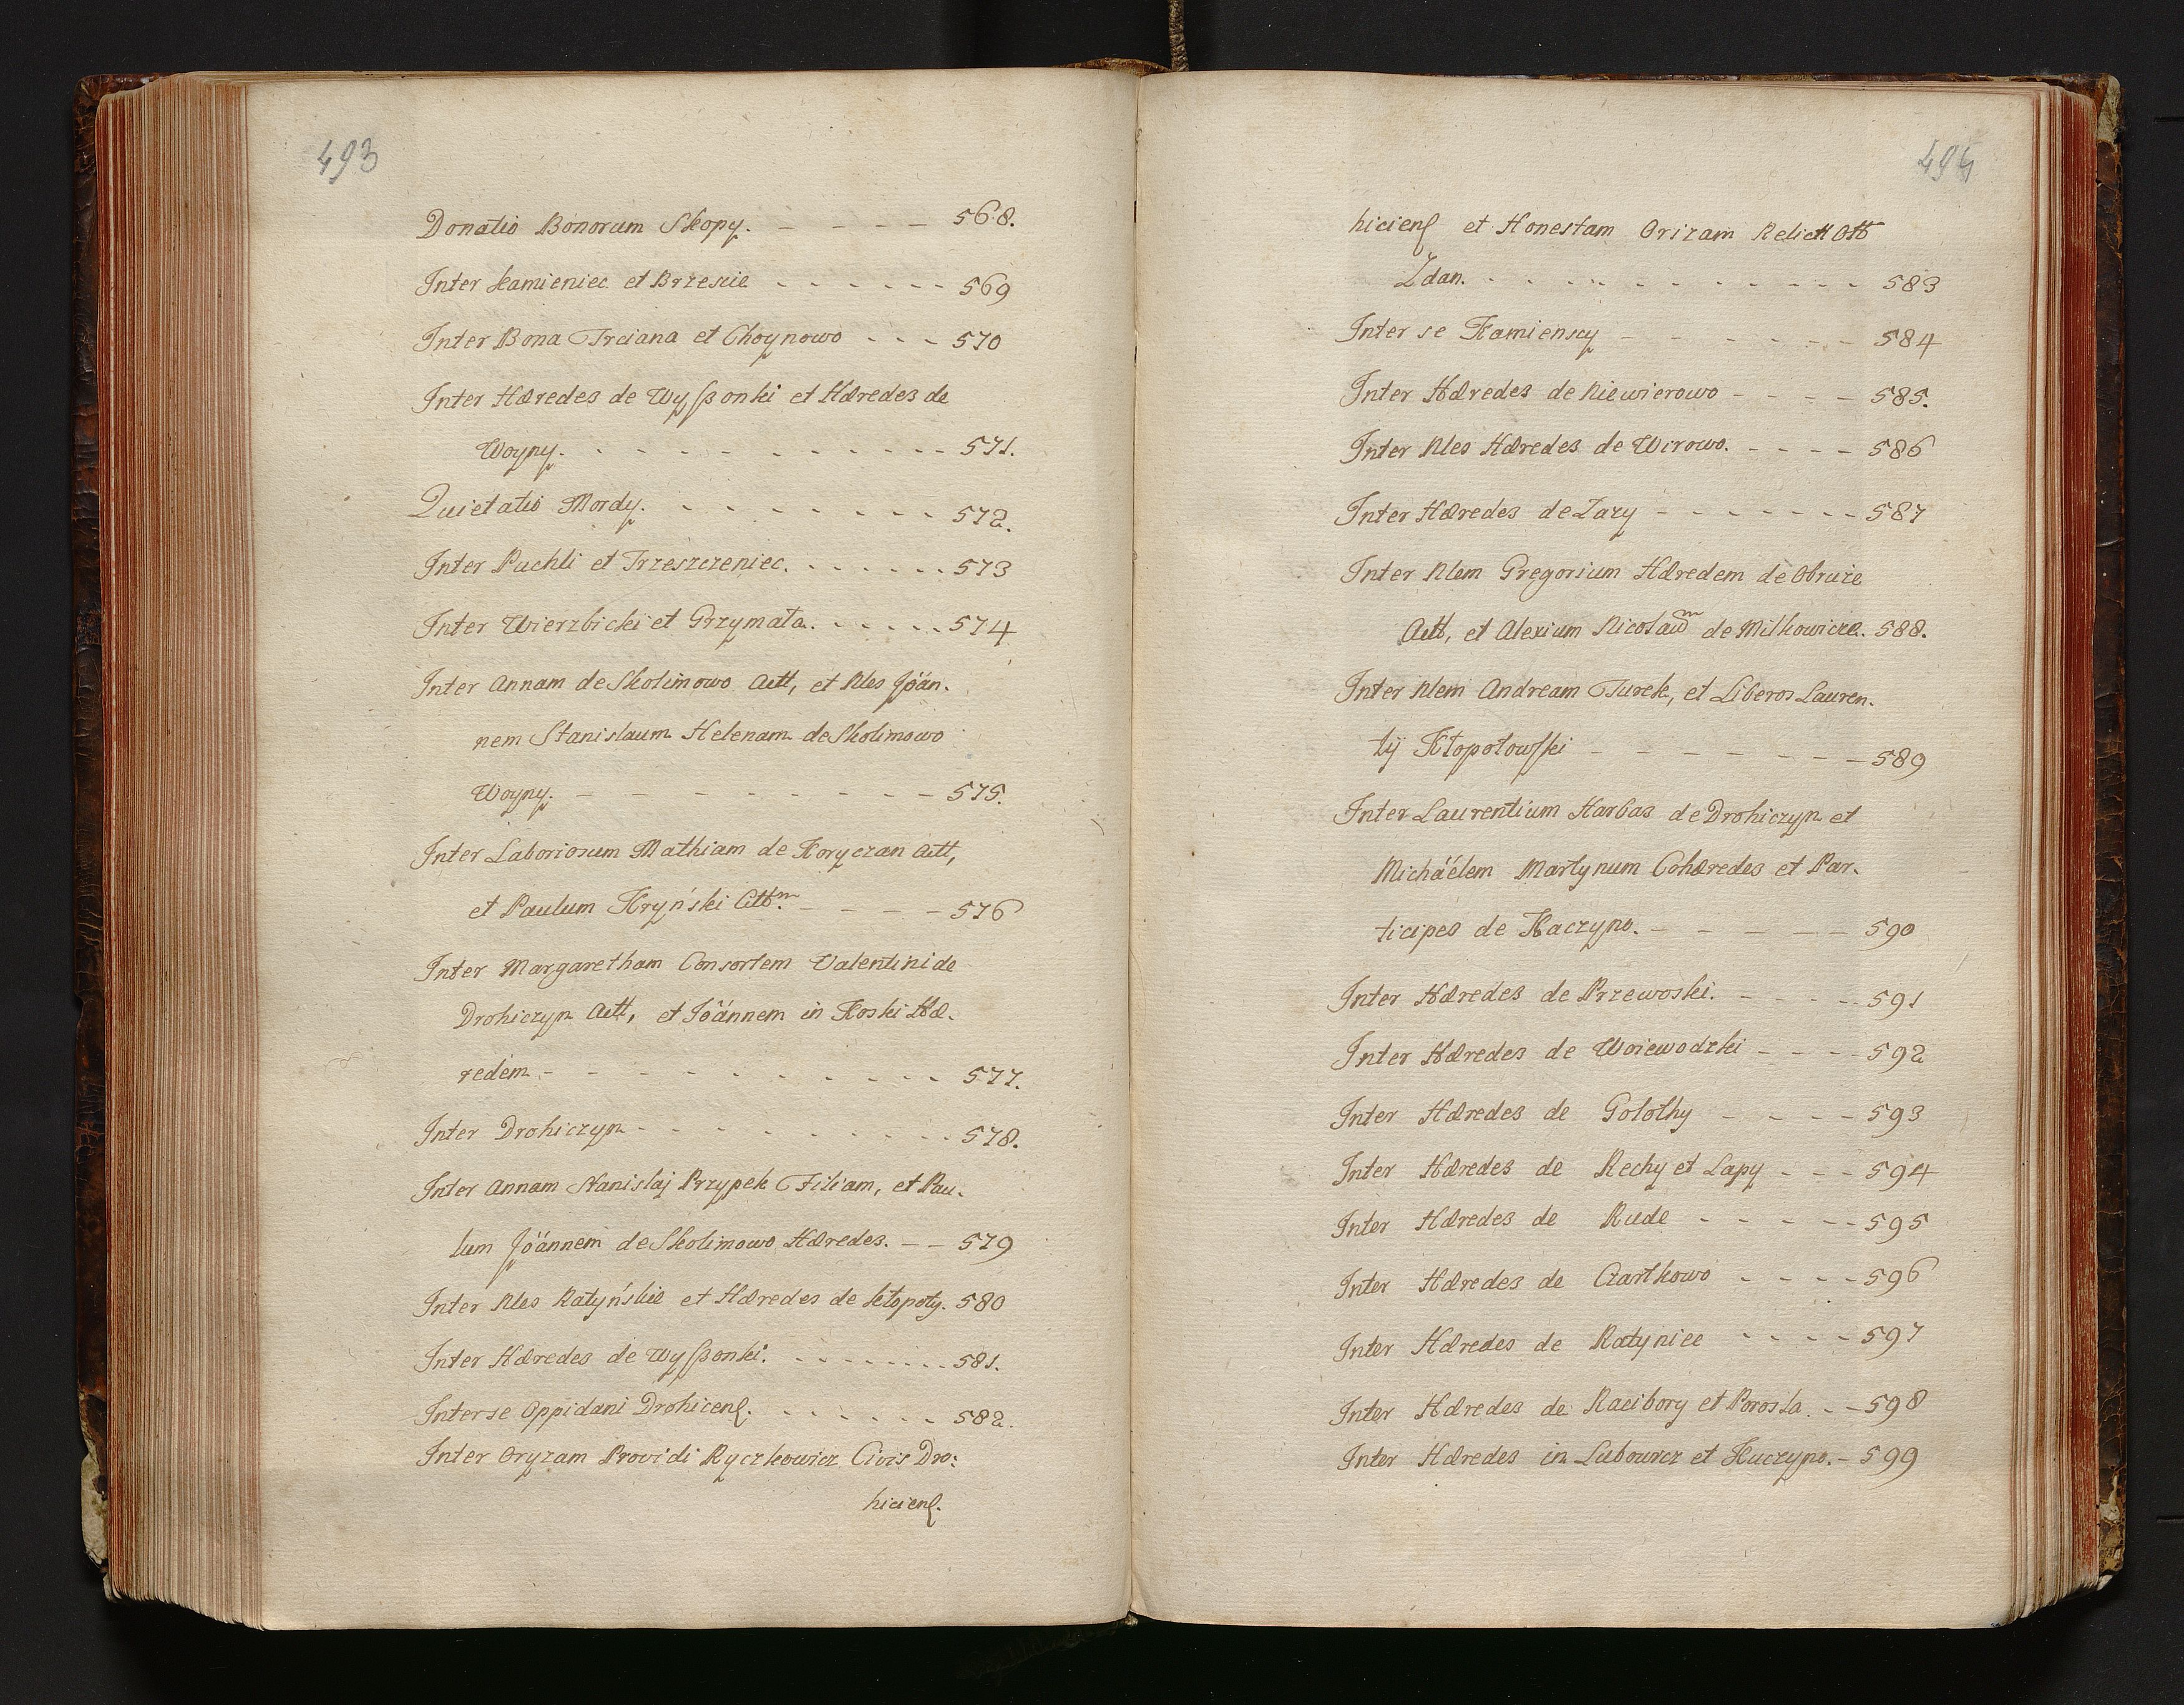 493
Donatio Bonorum Skopy. - - - - 568.
Inter Kamieniec et Brzescie - - - - - - 569
Inter Bona Trciana et Choynowo - - - 570
Inter Hæredes de Wyßonki et Hæredes de
Woyny. - - - - - - - - - - 571.
Quietatio Mordy. - - - - - - - 572.
Inter Puchli et Trzeszczeniec. - - - - - - 573
Inter Wierzbicki et Grzymała. - - - - - 574
Inter Annam de Skolimowo Actt, et Nles Jöän-
nem Stanislaum Helenam de Skolimowo
Woyny. - - - - - - - - - 575.
Inter Laboriosum Mathiam de Koryczan Actt,
et Paulum Kryński Cittm. - - - - 576
Inter Margaretham Consortem Valentini de
Drohiczyn Actt, et Jöännem in Koski Hæ-
redem - - - - - - - - - - 577.
Inter Drohiczyn - - - - - - - - 578.
Inter Annam Stanislaj Przypek Filiam, et Pau-
lum Jöännem de Skolimowo Hæredes. - - 579
Inter Nles Ratyńskie et Hæredes de Kłopoty. 580
Inter Hæredes de Wyßonki. - - - - - - - 581.
Inter se Oppidani Drohicenſ. - - - - - - 582.
Inter Oryzam Providi Ryczkowicz Civis Dro:
hicienſ.
494
hicienſ et Honestam Orizam Relictt Ott
Zdan. - - - - - - - - - - - 583
Inter se Kamienscy - - - - - - 584
Inter Hæredes de Niewierowo - - - - 585.
Inter Nles Hæredes de Wirowo. - - - - 586
Inter Hæredes de Zary - - - - - - - 587
Inter Nlem Gregorium Hæredem de Obruze
Actt, et Alexium Nicolaum de Milkowicze. 588.
Inter Nlem Andream Turek, et Liberos Lauren-
tij Kłopotowſki - - - - - - - 589
Inter Laurentium Harbas de Drohiczyn et
Michäélem Martynum Cohæredes et Par-
ticipes de Kaczyno. - - - - - 590
Inter Hæredes de Przewoski. - - - - 591
Inter Hæredes de Woiewodzki - - - - 592
Inter Hæredes de Golothy - - - - 593
Inter Hæredes de Rechy et Lapy - - - 594
Inter Hæredes de Rude - - - - - 595
Inter Hæredes de Czartkowo - - - - 596
Inter Hæredes de Ratyniec - - - - 597
Inter Hæredes de Racibory et Porosla. - - 598
Inter Hæredes in Lubowicz et Kuczyno. - 599